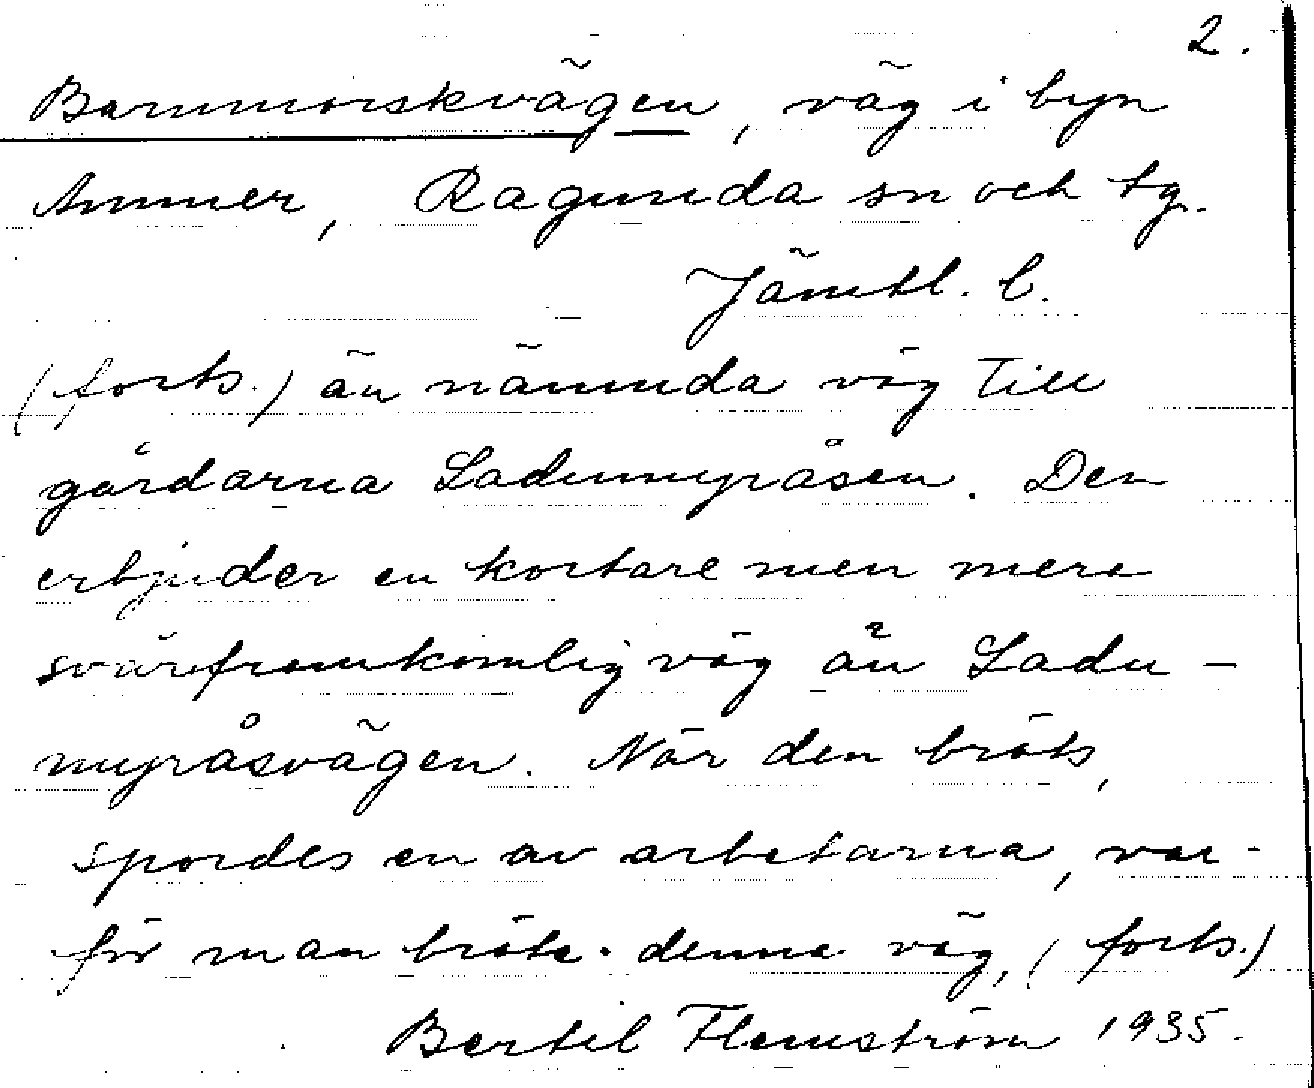 2.
Barnmorskvägen, väg i byn
Ammer, Ragunda sn och tg.
Jämtl. l.
(forts.) än nämnda väg till
gårdarna Ladumyråsen. Den
erbjuder en kortare men mera
svårframkomlig väg än Ladu-
myråsvägen. När den bröts,
spordes en av arbetarna, var-
för man bröte denna väg, (forts.)
Bertil Flemström 1935.